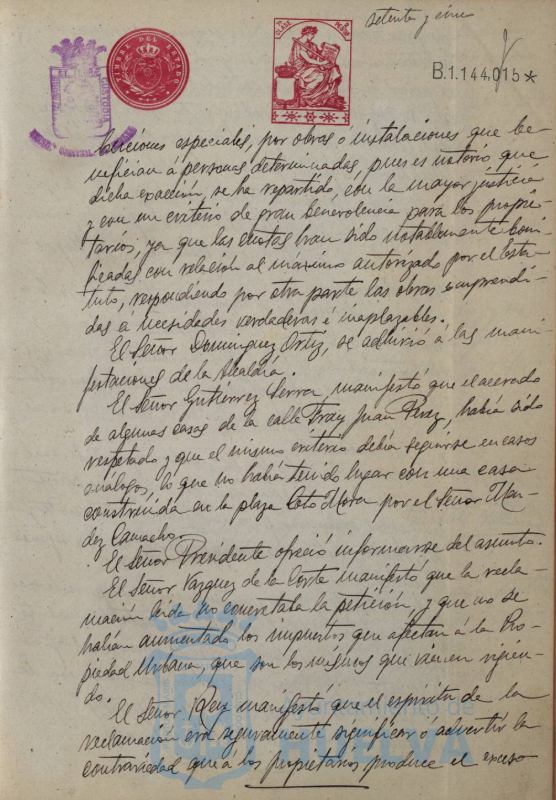 setenta y cinco
TIMBRE DEL ESTADO
CLASE
B.1.144.015*
buciones especiales, por obras ó instalaciones que be-
nefician á personas determinadas, pues es notorio que
dicha exacción, se ha repartido, con la mayor justicia
y con un criterio de gran benevolencia para los propie-
tarios, ya que las cuotas han sido notablemente boni-
ficadas con relación al máximo autorizado por el Esta-
tuto, respondiendo por otra parte las obras emprendi-
das á necesidades verdaderas é inaplazables.
El Señor Dominguez Ortiz, se adhirió á las mani-
festaciones de la Alcaldía.
El Señor Gutiérrez Serra manifestó que el acerado
de algunas casas de la calle Fray Juan Perez, había sido
respetado y que el mismo criterio debía seguirse en casos
análogos, lo que no había tenido lugar con una casa
construida en la plaza Coto Mora por el Señor Man-
dez Camacho.
El Señor Presidente ofreció informarse del asunto.
El Señor Vazquez de la Corte manifestó que la recla-
mación leida no concretaba la petición, y que no se
habían aumentado los impuestos que afectan á la Pro-
piedad Urbana, que son los mismos que vienen rigien-
do.
El Señor Rey manifestó que el espíritu de la
reclamación era seguramente significar ó advertir la
contrariedad que á los propietarios produce el exceso
HUELVA